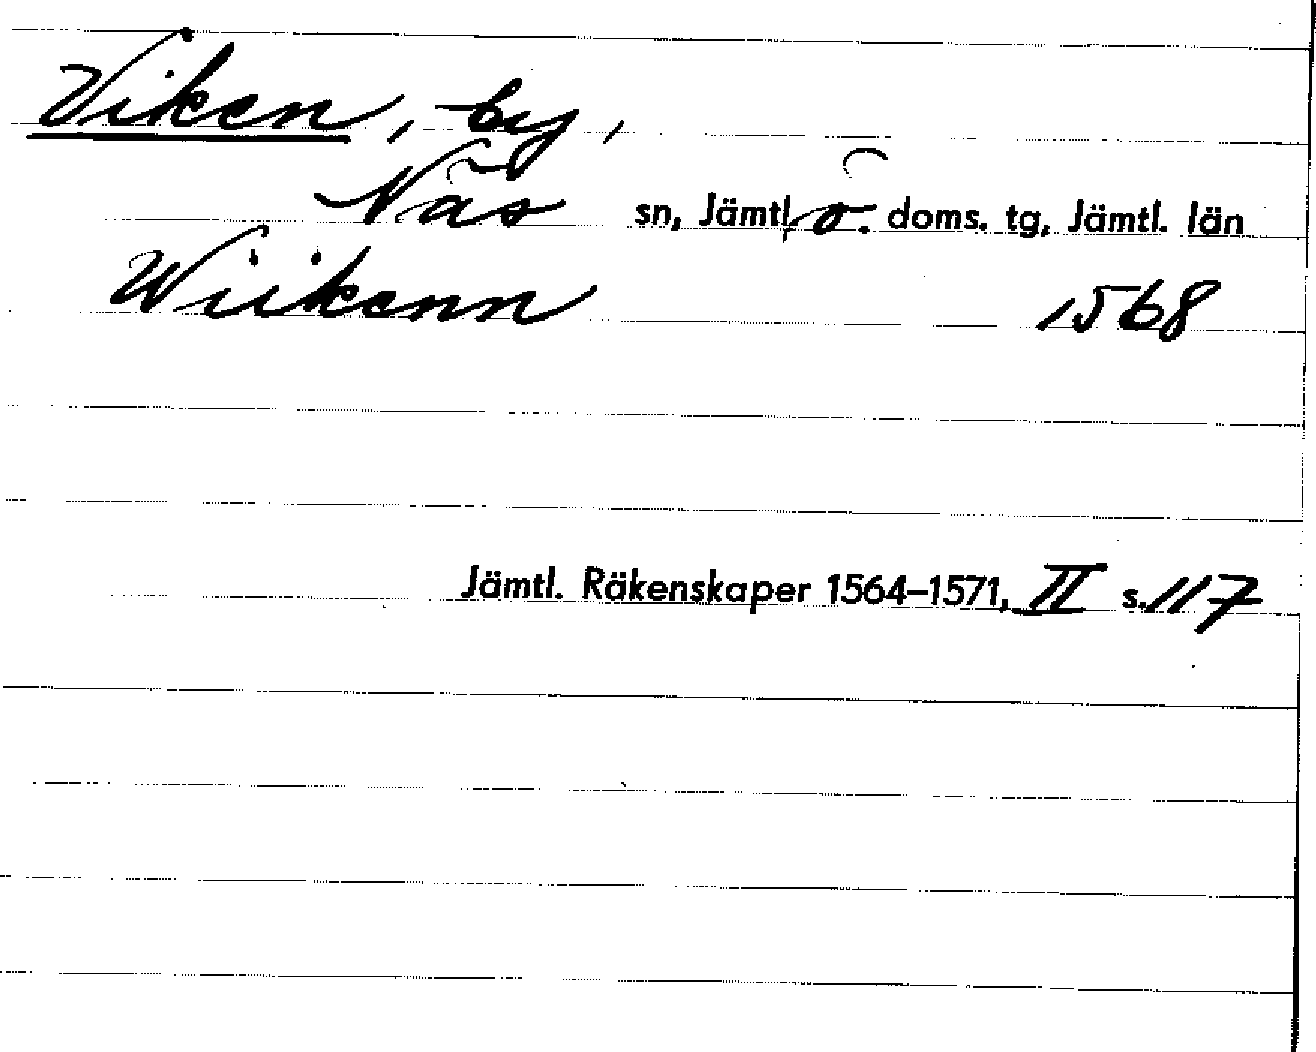 Viken, by,
Näs sn, Jämtl. ö. doms. tg, Jämtl. län
Wiikenn 1568
Jämtl. Räkenskaper 1564–1571, II s. 117